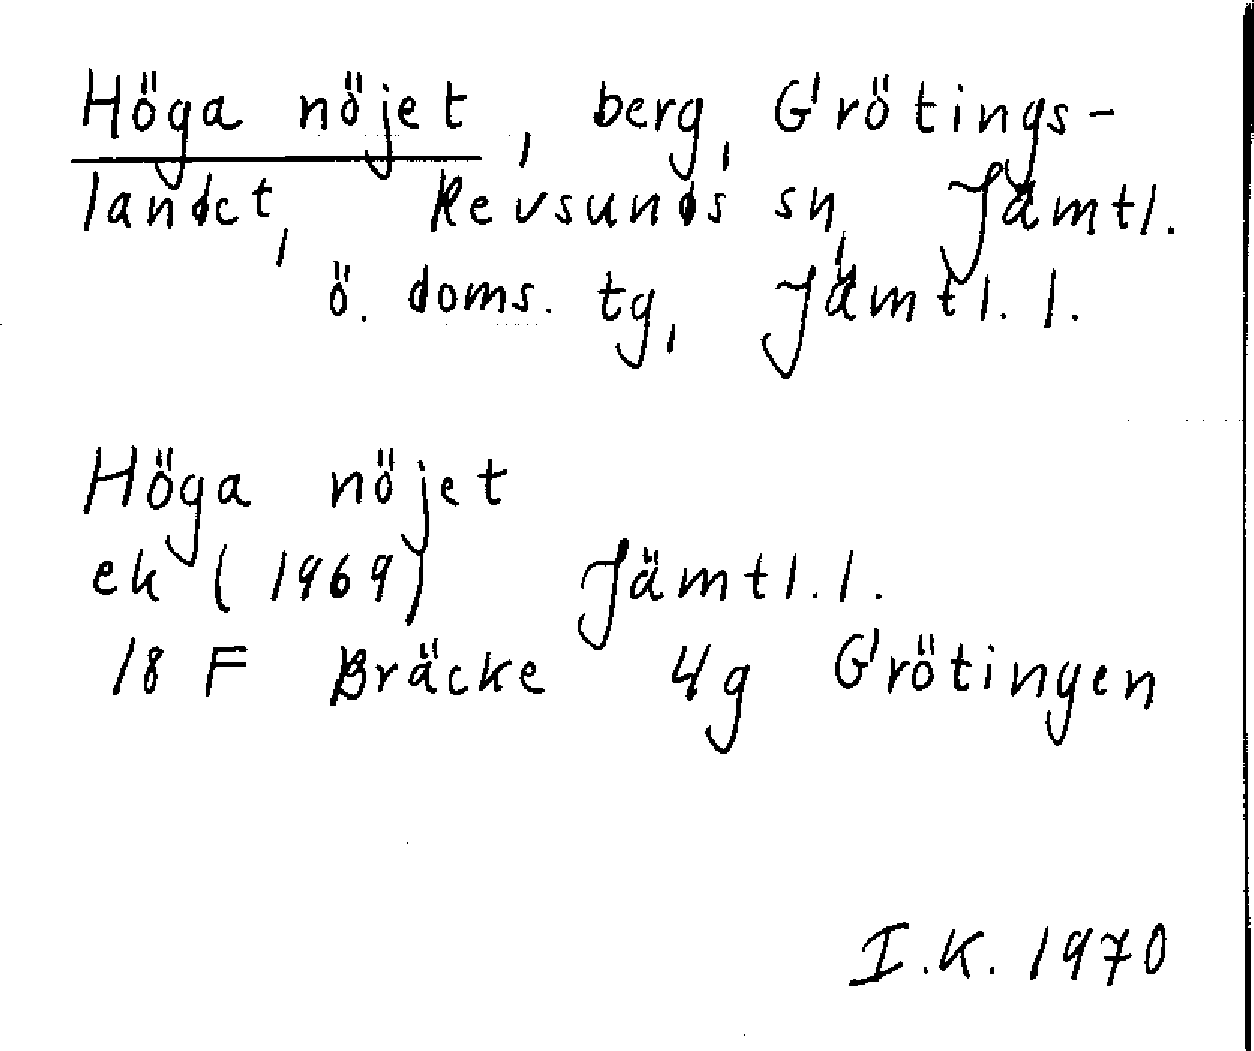 Höga nöjet, berg, Grötings-
landet, Revsunds sn, Jämtl.
ö. doms. tg, Jämtl. l.
Höga nöjet
ek (1969) Jämtl. l.
18 F Bräcke 4g Grötingen
I.K. 1970